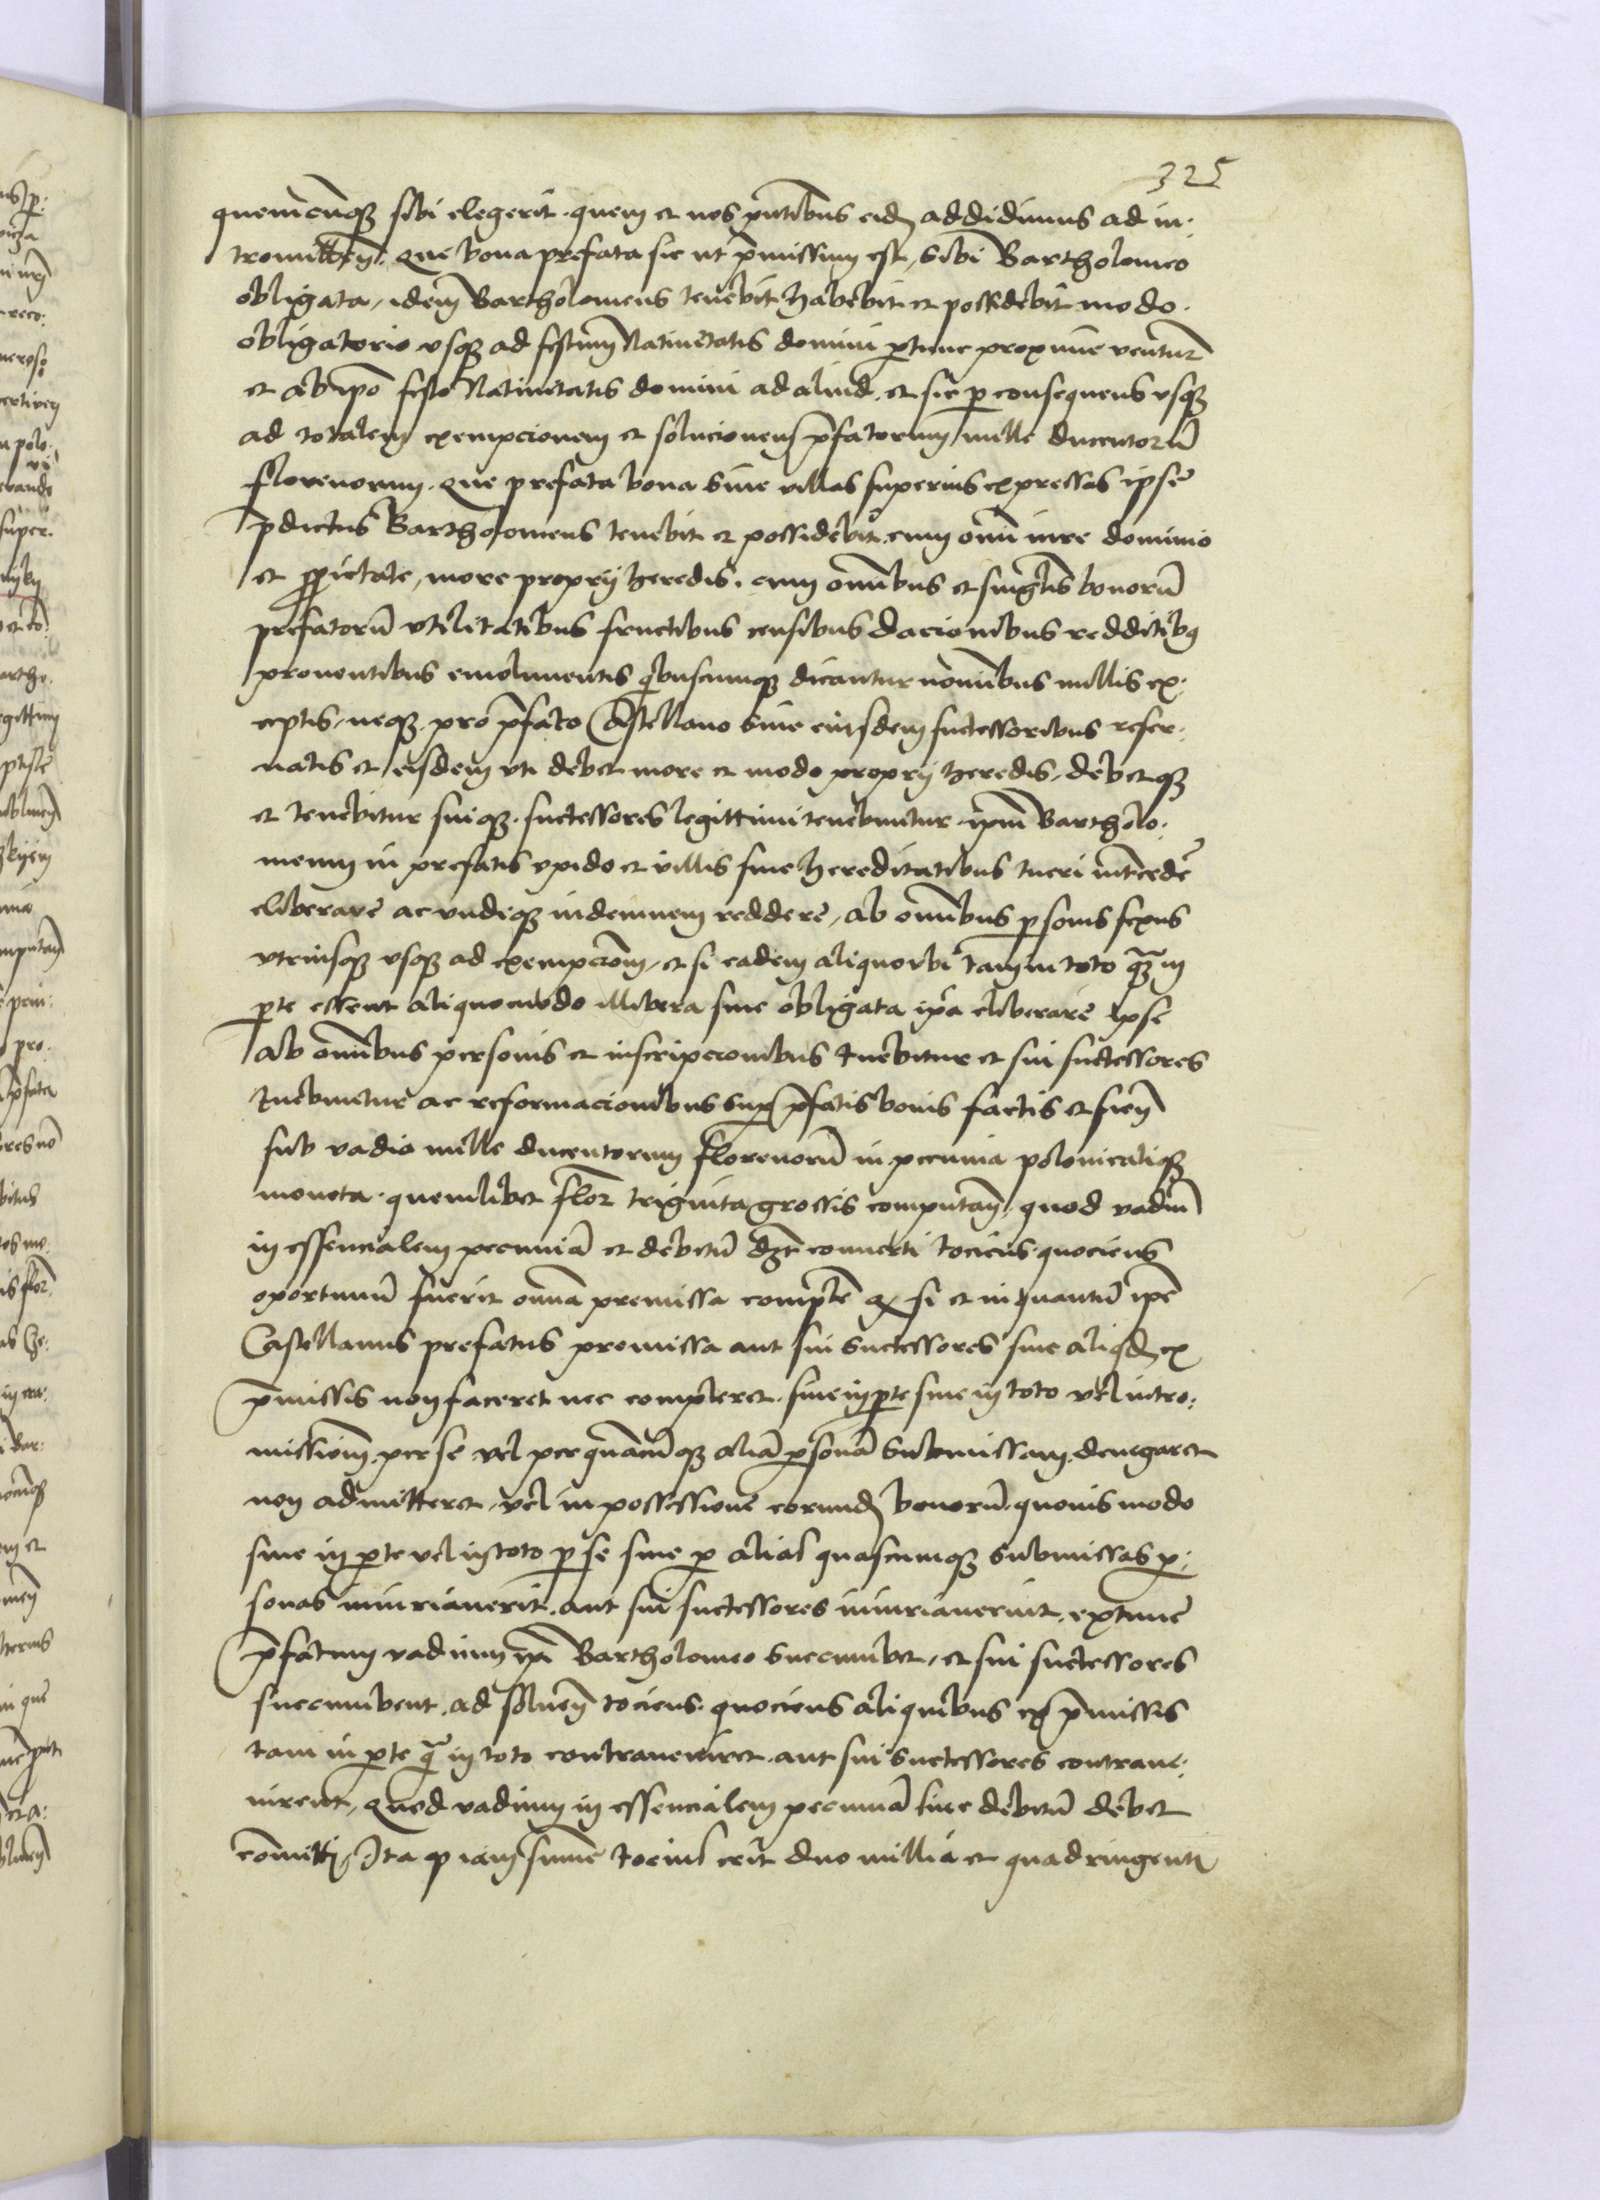 325
quemcu̅q3 sibi elegerit. quem et nos pn̅tibus eid̅ addidimus ad in:
tromitten̅. Que bona prefata sic ut p̅missum est, Sibi Bartholomeo
obligata, idem Bartholomeus tenebit habebit et possidebit modo.
obligatorio vsq3 ad festum Natiuitatis domini extunc proxime ventur̅
et ab ip̅o festo Natiuitatis domini ad aliud. et sic p consequens vsq3
ad totalem exempcionem et solucionem p̅fatorum mille ducentoru̅
florenorum. Que prefata bona siue villas superius expressas ipse
p̅dictus Bartholomeus tenebit et possidebit. cum om̅i iure dominio
et p̅prietate, more proprij heredis. cum om̅ibus et sing̅lis bonoru̅
prefatoru̅ vtilitatibus fructibus censibus dacionibus redditib9
prouentibus emolumentis q̅buscumq3 dicantur nominibus nullis ex:
ceptis, neq3. pro p̅fato Castellano siue eiusdem successoribus reser:
uatis et eisdem vti debet more et modo proprij heredis, debetq3
et tenebitur suiq3. successores legittimi tenebuntur. ip̅m Bartholo:
meum in prefatis opido et villis siue hereditatibus tueri int̅cede̅
eliberare ac vndiq3 indemnem reddere, ab om̅ibus psonis sexus
vtriusq3 vsq3 ad exempcio̅m, et si eadem aliquorbi tam in toto q̅3 in
pte essent aliquomodo illibera siue obligata ip̅a eliberare Ipse
ab om̅ibus personis et inscripcionibus tuebitur et sui successores
tuebuntur ac reformacionibus sup p̅fatis bonis factis et fien̅
sub vadio mille ducentorum florenoru̅ in pecunia polonicaliq3
moneta. quemlibet flor̅ triginta grossis computan̅. quod vadiu̅
in essencialem pecunia̅ et debitu̅ d3 conuerti tociens. quociens
oportunu̅ fuerit om̅ia premissa compl̅e &. si et inquantu̅ ip̅e
Castellanus prefatus promissa aut sui successores siue aliq̅d ex
p̅missis non faceret nec compleret. siue in pte siue in toto vel intro:
missiom̅. per se vel per quacu̅q3 alia̅ psona̅ submissam. denegaret
non admitteret. vel in possessione eorund̅ bonoru̅. quouis modo
siue in pte vel in toto p se siue p alias quascumq3 submissas p:
sonas iniuriauerit. aut sui successores iniuriauerint. extunc
p̅fatum vadium ip̅i Bartholomeo succumbet, et sui successores
succumbent. ad soluen̅ tociens. quociens aliquibus ex p̅missis
tam in pte q̅ in toto contraueniret. aut sui successores contraue:
nirent. Quod vadium in essencialem pecunia̅ siue debitu̅ debet
co̅mitti. Ita q iam sume tocius erit duo millia et quadringenti